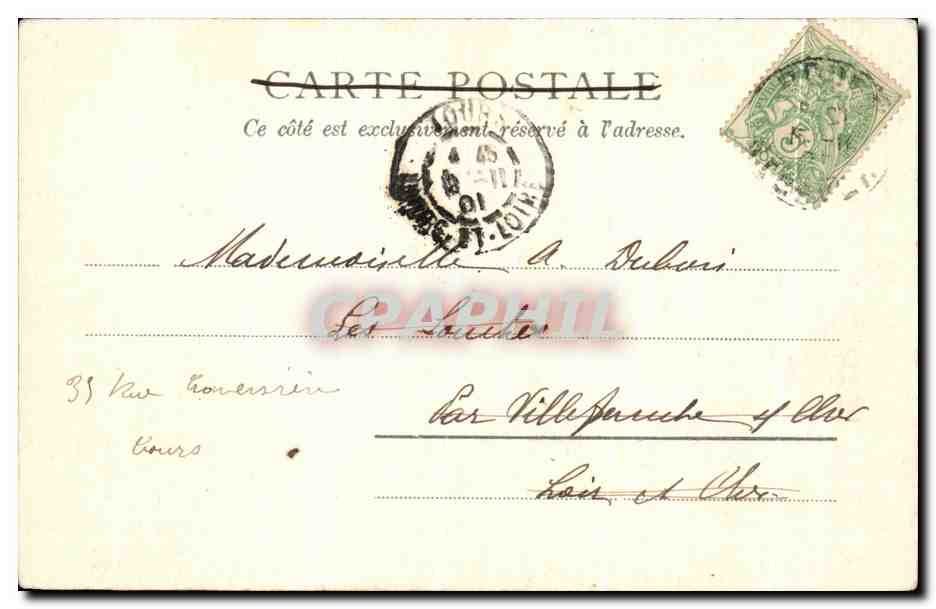 CARTE POSTALE
Ce côté est exclusivement réservé à l'adresse.
TOURS
INDRE-ET-LOIRE
01
5
Mademoiselle A. Dubois
CPAPHIL
Les
35 Rue
Tours
Par Villefranche s/ Cher
Loir et Cher